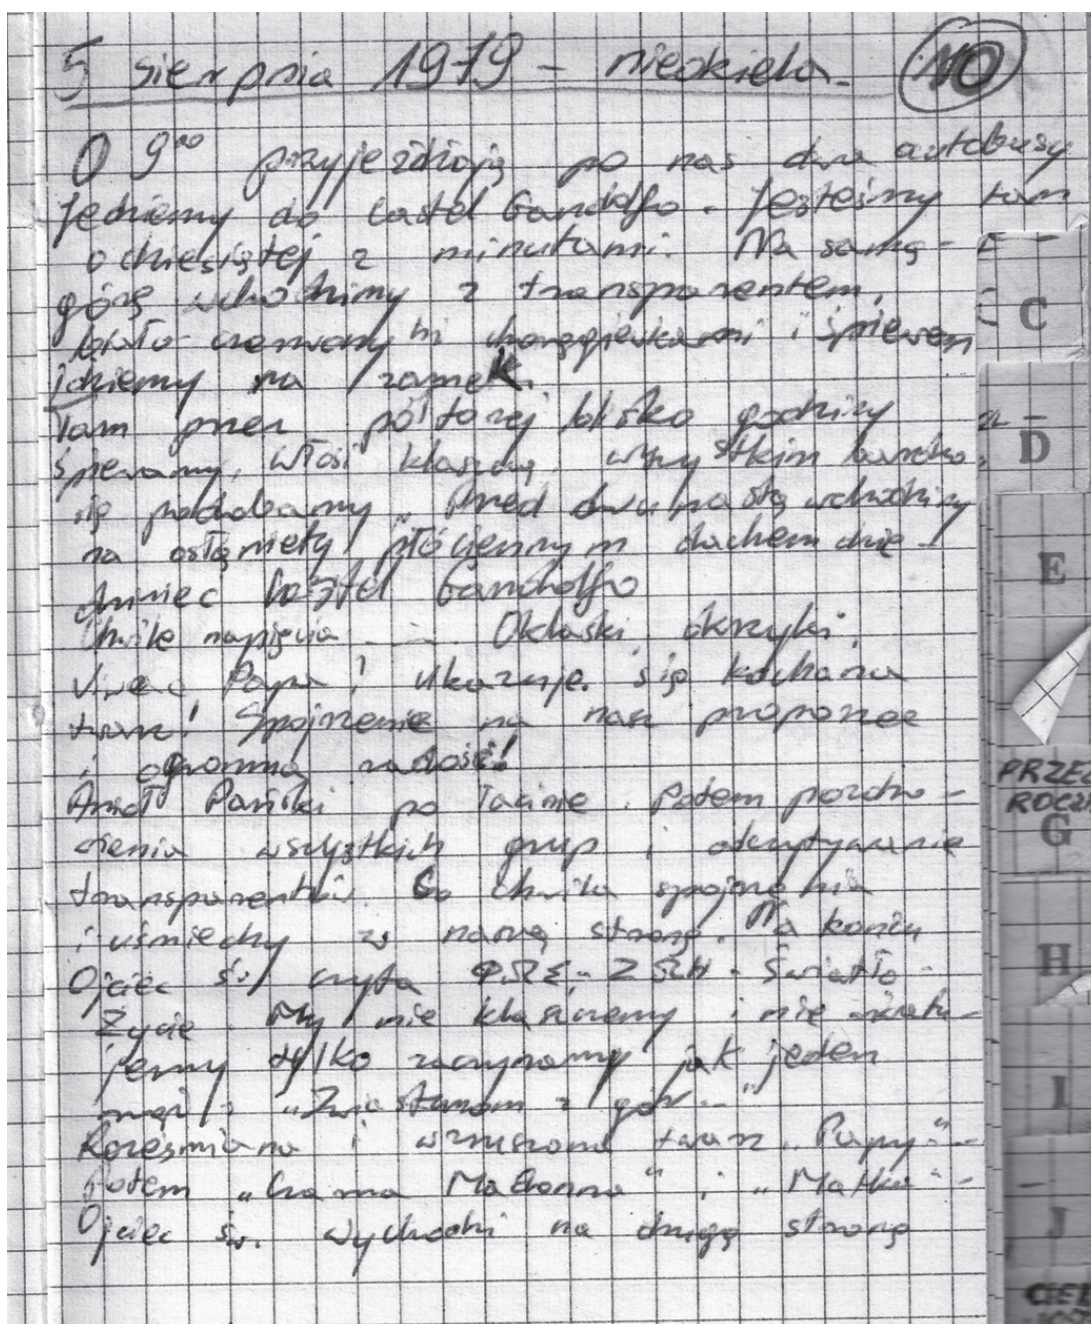 5 sierpnia 1979 - niedziela. 10
O 9⁰⁰ przyjeżdżają po nas dwa autobusy
Jedziemy do Castel Gandolfo. Jesteśmy tam
o dziesiątej z minutami. Na samą
górę wchodzimy z transparentem,
biało-czerwonymi chorągiewkami i śpiewem
idziemy na zamek.
Tam przez półtorej blisko godziny
śpiewamy, Włosi klaszczą, wszystkim bardzo
się podobamy. Przed dwunastą wchodzimy
na osłonięty płóciennym dachem dzie-
dziniec Castel Gandolfo
Chwile napięcia - - Oklaski, okrzyki,
Viva Papa! Ukazuje się kochana
twarz! Spojrzenie na nasz proporzec
i ogromna radość!
Anioł Pański po łacinie. Potem pozdro-
wienia wszystkich grup i odczytywanie
transparentów. Co chwila spojrzenia
i uśmiechy w naszą stronę. Na końcu
Ojciec św. czyta ΦΩΣ - ΖΩΗ - Światło -
Życie. My nie klaszczemy i nie
jemy tylko zaczynamy jak jeden
mąż: "Zwiastunom z gór..."
Roześmiana i wzruszona twarz "Papy" -
Potem "Czarna Madonna" i "Matko" -
Ojciec św. wychodzi na drugą stronę
C
D
E
PRZE
ROCZ
G
H
I
J